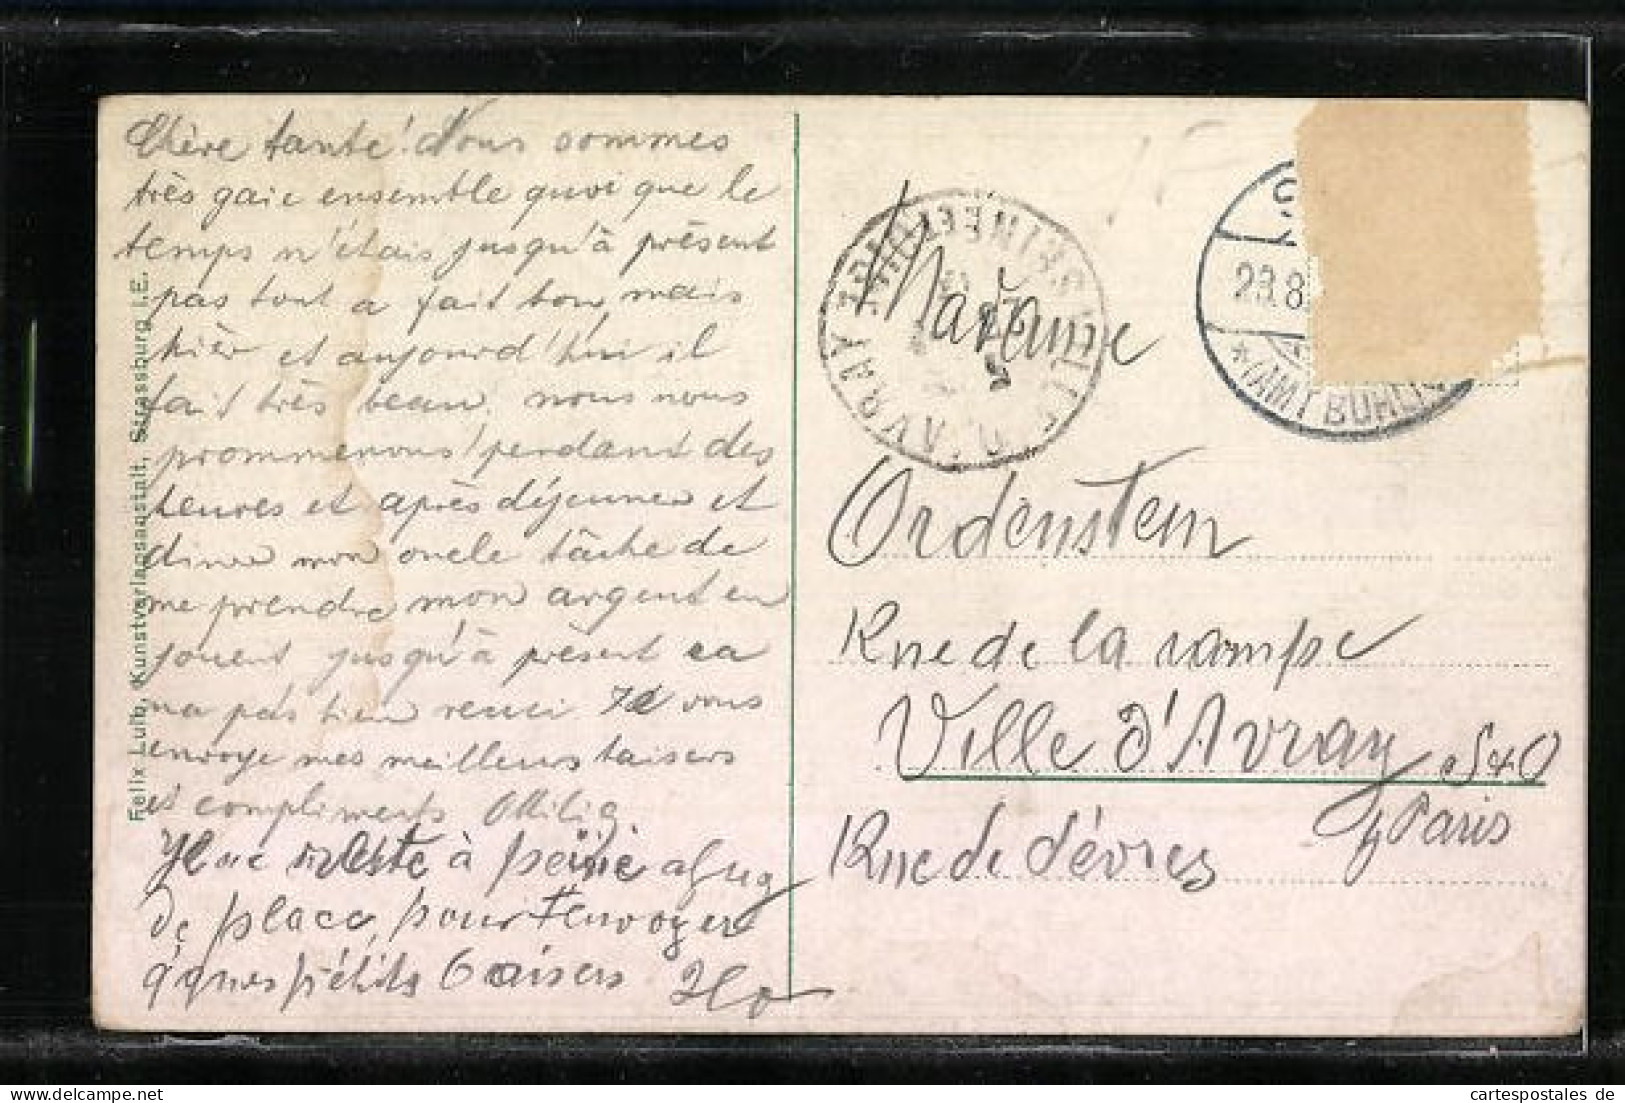 Chère tante! Nous sommes
très gaie ensemble quoi que le
temps n'étais jusqu'à présent
pas tout a fait bon, mais
hièr et aujourd'hui il
fait très beau. nous nous
prommenons pendant des
heures et après déjeuner et
diner mon oncle tâche de
me prendre mon argent en
jouent jusqu'à présent ca
na pas bien reuci Je vous
envoye mes meilleurs baisers
et compliments
Il me reste à peine
de place, pour t'envoyer
q'ques pétits baisers
Felix Luib, Kunstverlagsanstalt, Strassburg i.E.
VILLE D'AVRAY SEINE ET OISE
23.8
BÜHL
Madame
Ordenstein
Rue de la rampe
Ville d'Avray S+O
Paris
Rue de Sévres
cartespostales de